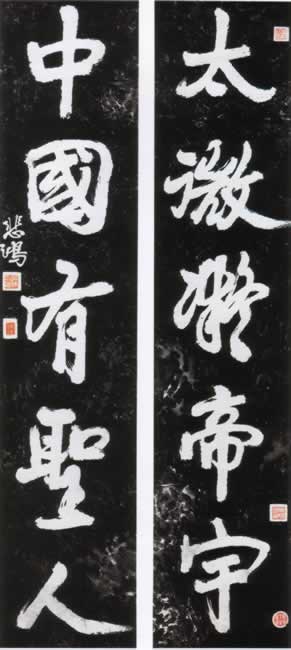 太微凝帝宇
中國有聖人
悲鴻